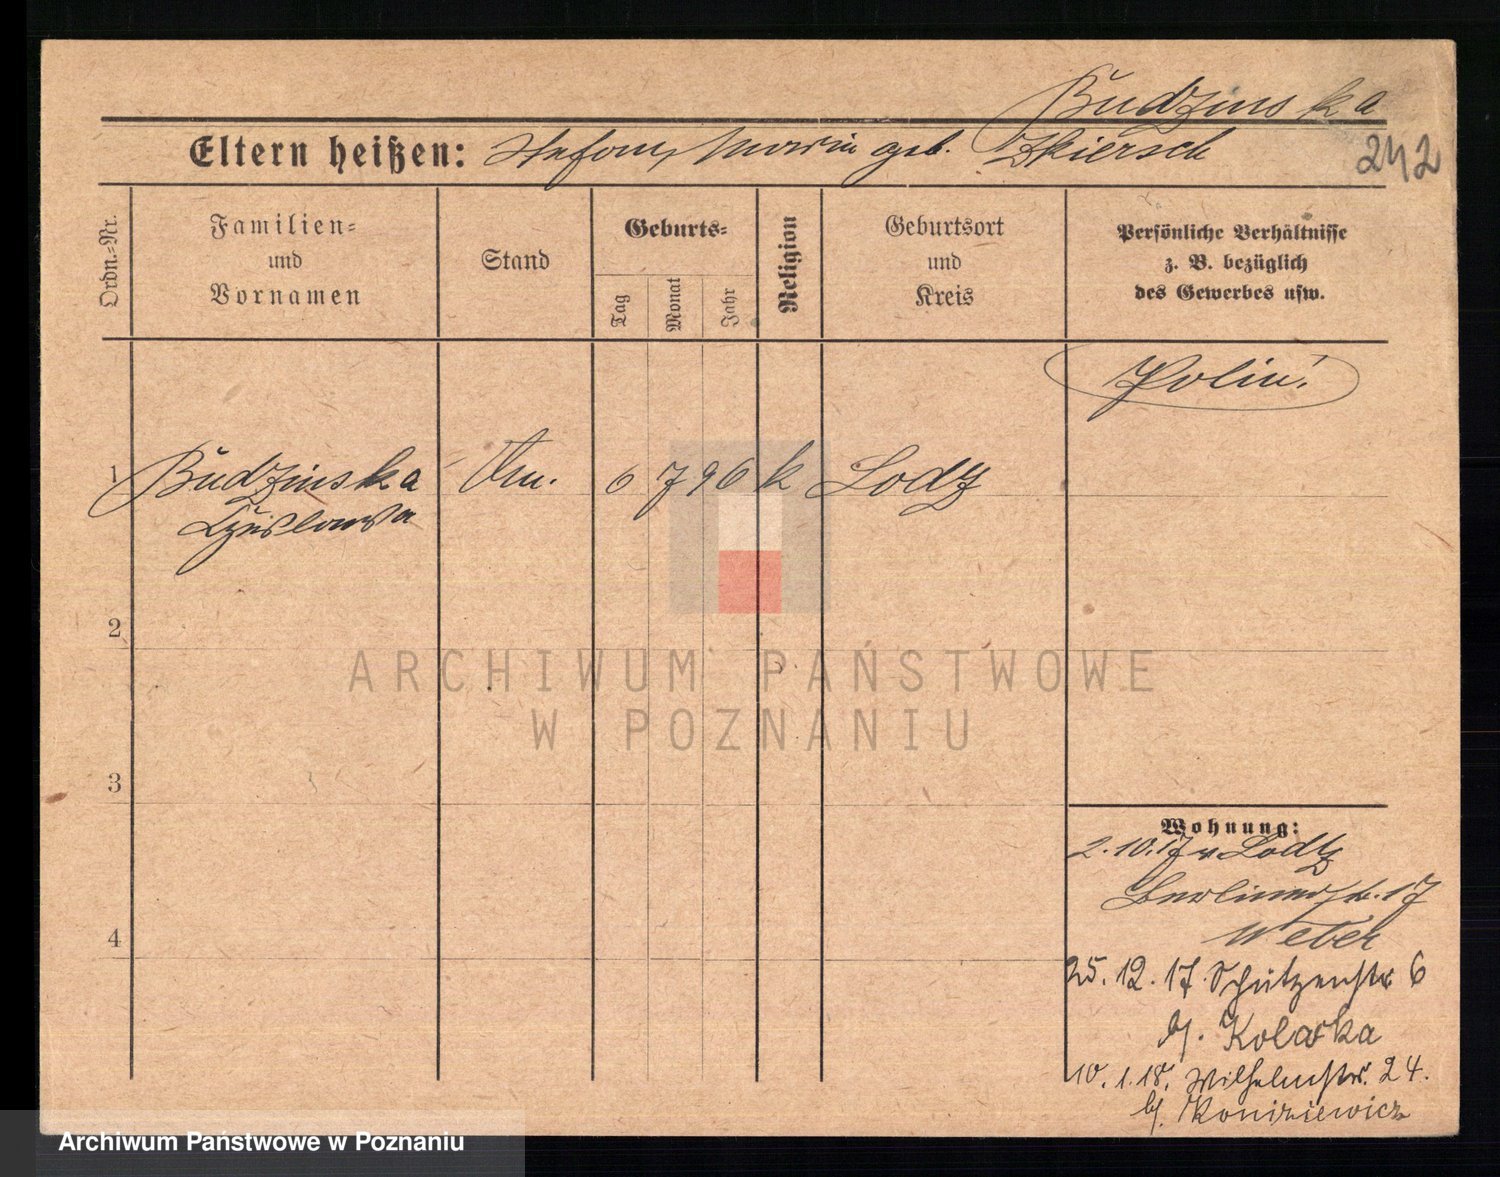 Budzinska
Eltern heißen: Stefan, Maria geb. Zkiersch
242
Ordn.-Nr.
Familien-
und
Vornamen
Stand
Geburts-
Tag
Monat
Jahr
Religion
Geburtsort
und
Kreis
Persönliche Verhältnisse
z. B. bezüglich
des Gewerbes usw.
Polin!
1 Budzinska 6 7 96 k Lodz
Czeslawa
2
3
4
ARCHIWUM PAŃSTWOWE
W POZNANIU
Wohnung:
2.10.17 v Lodz
Berlinerstr. 17
Weber
25.12.17. Schützenstr 6
bj. Kolaska
10.1.18. Wilhelmstr. 24.
bj.
Archiwum Państwowe w Poznaniu